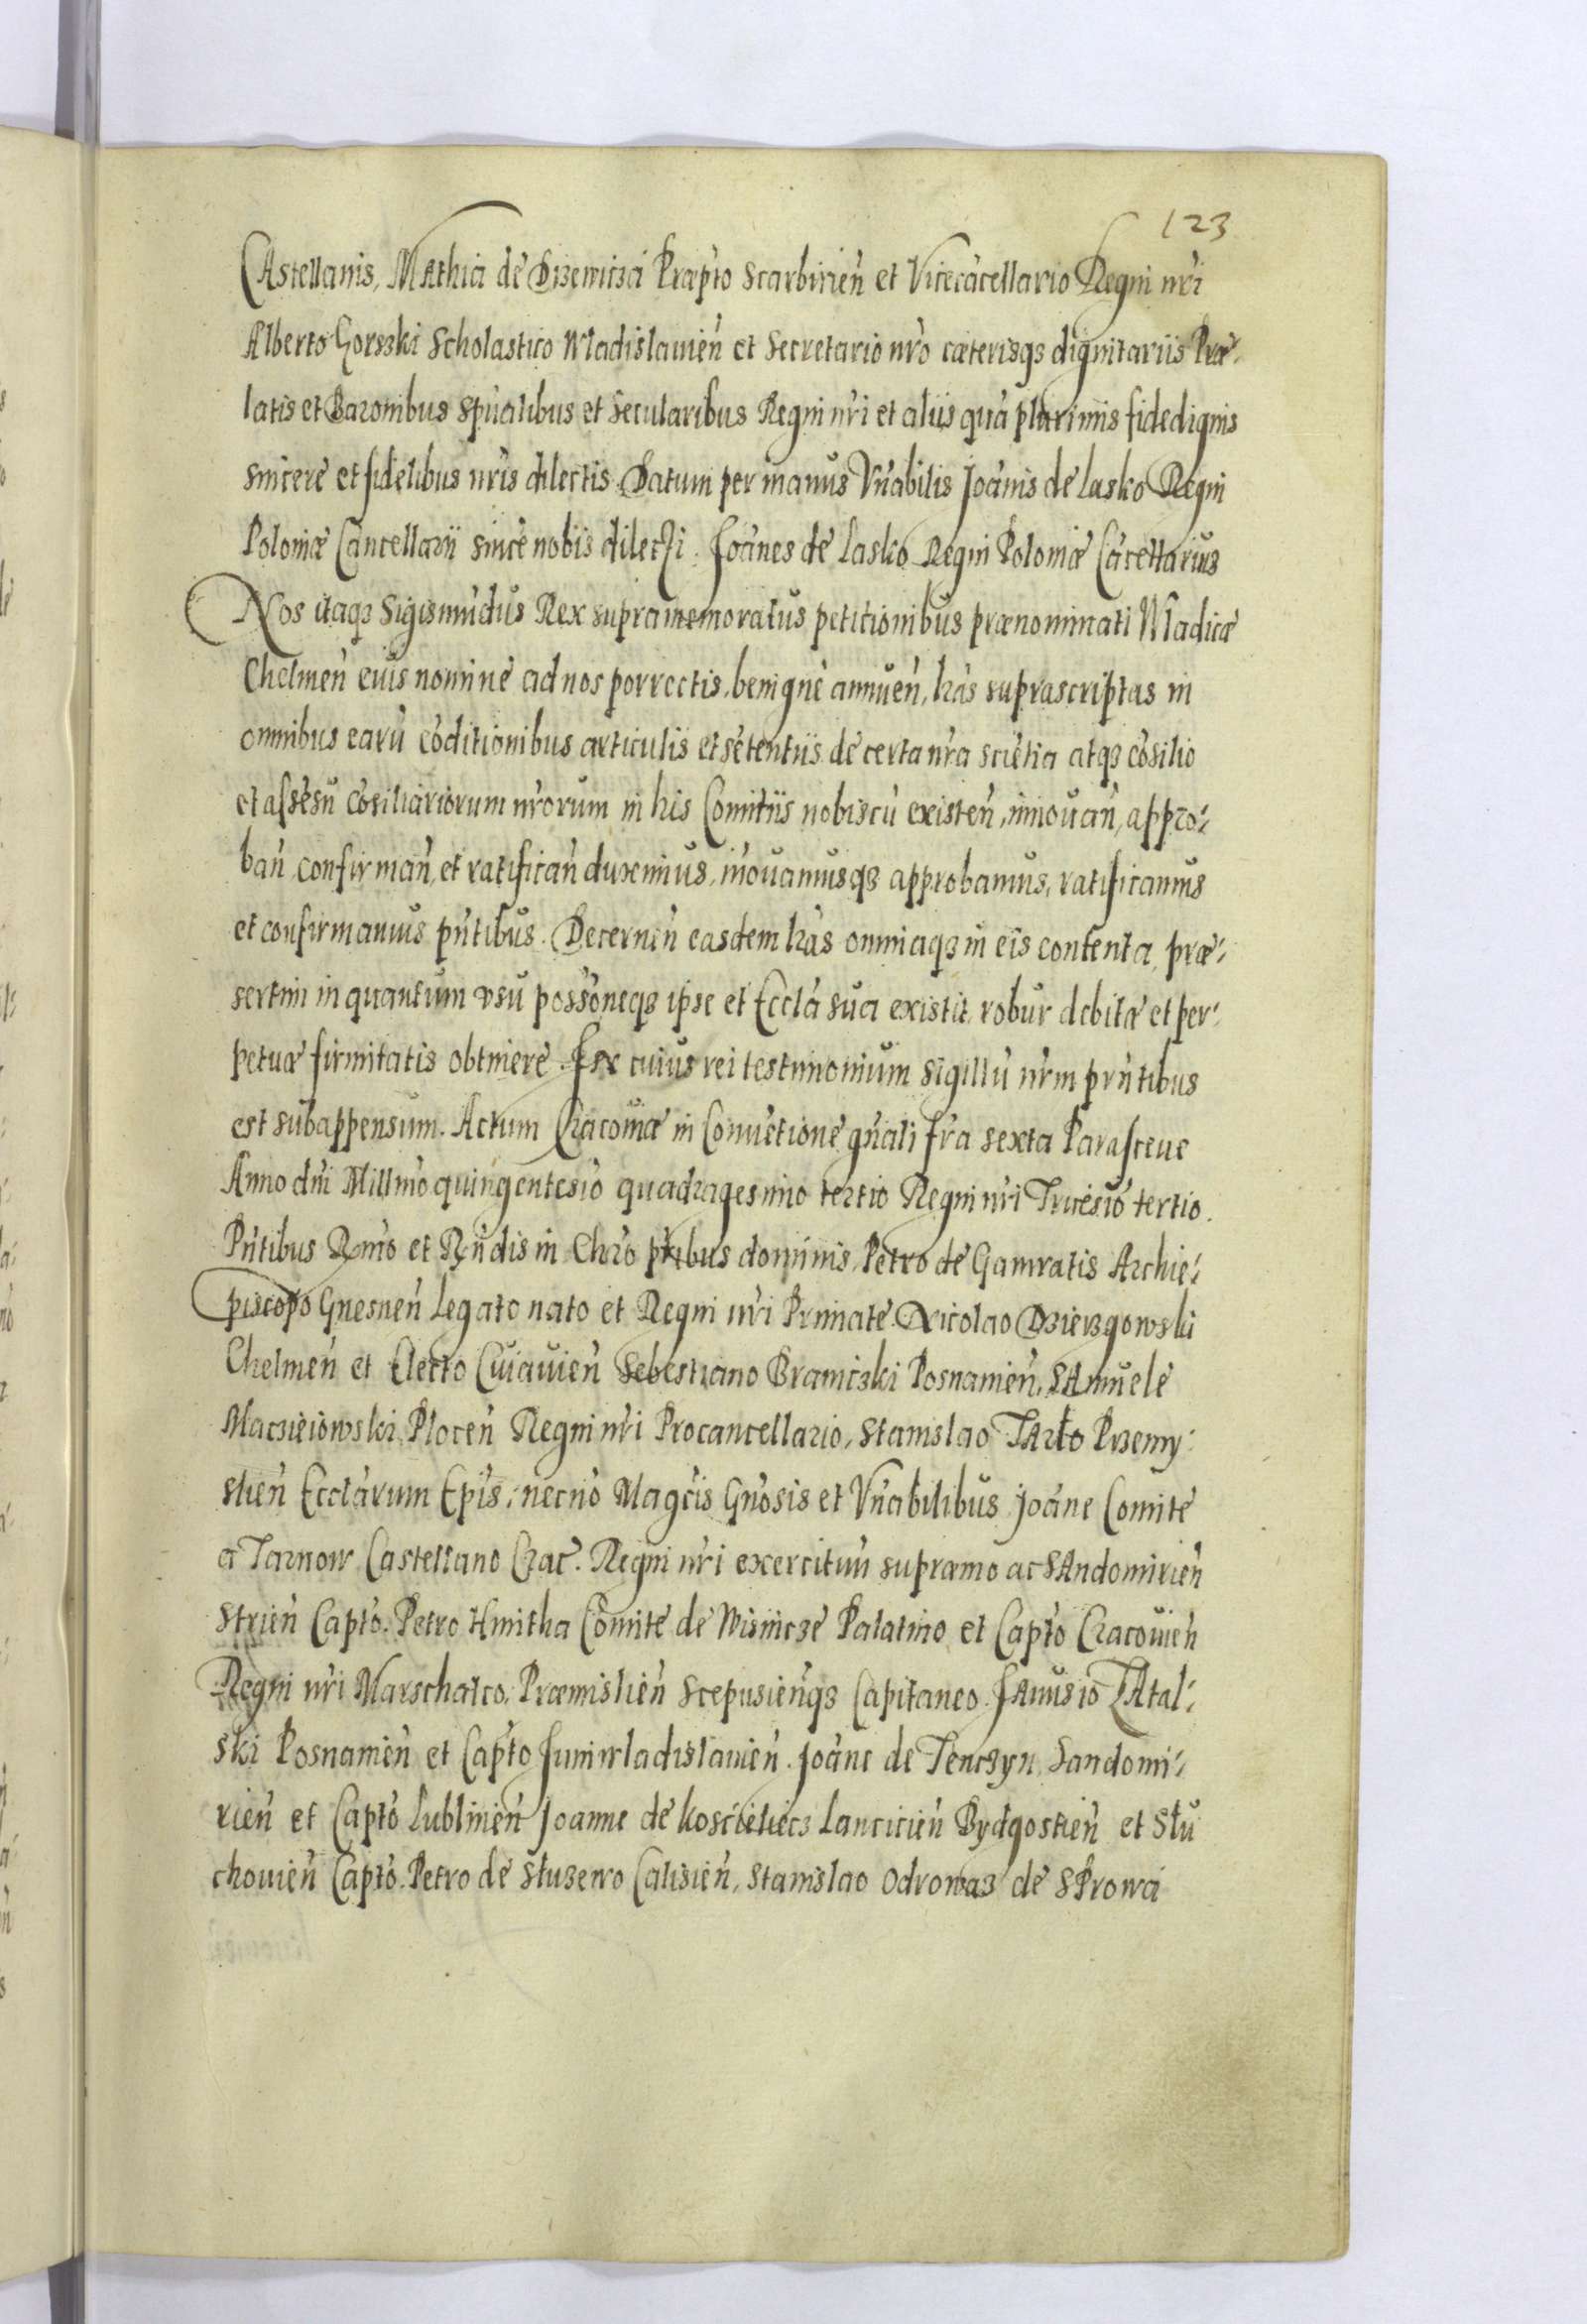 123
Castellanis, Mathia de Drzewicza Præpto Scarbirień et Vicecācellario Regni nr̃i
Alberto Gorszki Scholastico Wladislauień et Secretario nr̃o cæterisqȝ dignitariis Præ-
latis et Baronibus Spũalibus et Secularibus Regni nr̃i et aliis quā plurimis fidedignis
sincere et fidelibus nr̃is dilectis. Datum per manus Vñabilis Joānis de Lasko Regni
Poloniæ Cancellarii since nobis dilecti. Joānes de Lasko Regni Poloniæ Cācellarius
Nos itaqȝ Sigismūdus Rex supramemoratus petitionibus prænominati Madicæ
Chelmeń eius nomine ad nos porrectis, benigne annueń, lr̃as suprascriptas in
omnibus earū cōditionibus articulis et sētentiis de certa nr̃a sciētia atqȝ cōsilio
et assēsu cōsiliariorum nr̃orum in his Comitiis nobiscū existeń, innouań, appro-
bań confirmań, et ratificań duximus, inouamusqȝ approbamus, ratificamus
et confirmamus pñtibus. Decerneń easdem lr̃as omniaqȝ in eis contenta, præ-
sertim in quantum vsu possōneqȝ ipse et Eccl̃a sua existit, robur debitæ et per-
petuæ firmitatis obtinere. In cuius rei testimonium Sigillū nr̃m prñtibus
est subappensum. Actum Cracouiæ in Conuētione gñali fr̃a sexta Parasceue
Anno dñi Millm̃o quingentesi͂o quadragesimo tertio Regni nr̃i Tricesi͂o tertio.
Pñtibus Rm̃o et Rñdis in Chr̃o pr̃ibus dominis, Petro de Gamratis Archie-
piscopo Gnesneń Legato nato et Regni nr̃i Primate. Nicolao Dzierzgowski
Chelmeń et Electo Cuiauień Sebestiano Braniczki Posnanień, SAmuele
Maczieiowski Ploceń Regni nr̃i Procancellario, Stanislao TArło Przemy-
slień Eccl̃arum Ep̃is, necnō Magc̃is Gñosis et Vñabilibus Joāne Comite
a Tarnow Castellano Crac̃. Regni nr̃i exercituū supræmo ac SAndomirień
Strień Capto. Petro Kmitha Comite de Wisnicze Palatino et Capto Cracouień
Regni nr̃i Marschalco, Præmislień Scepusieńqȝ Capitaneo. JAnusio LAtal-
ski Posnanień et Capto Juniwladislauień. Joāne de Tenczyn Sandomi-
rień et Capto Lublinień Joanne de Koscieliecz Lancicień Bydgostień et Słu
chouień Capto. Petro de Słuzewo Calisień, Stanislao Odrowaz de SProwa